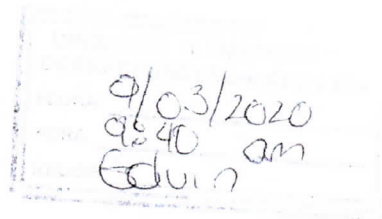 9/03/2020
9:40 am
Edwin